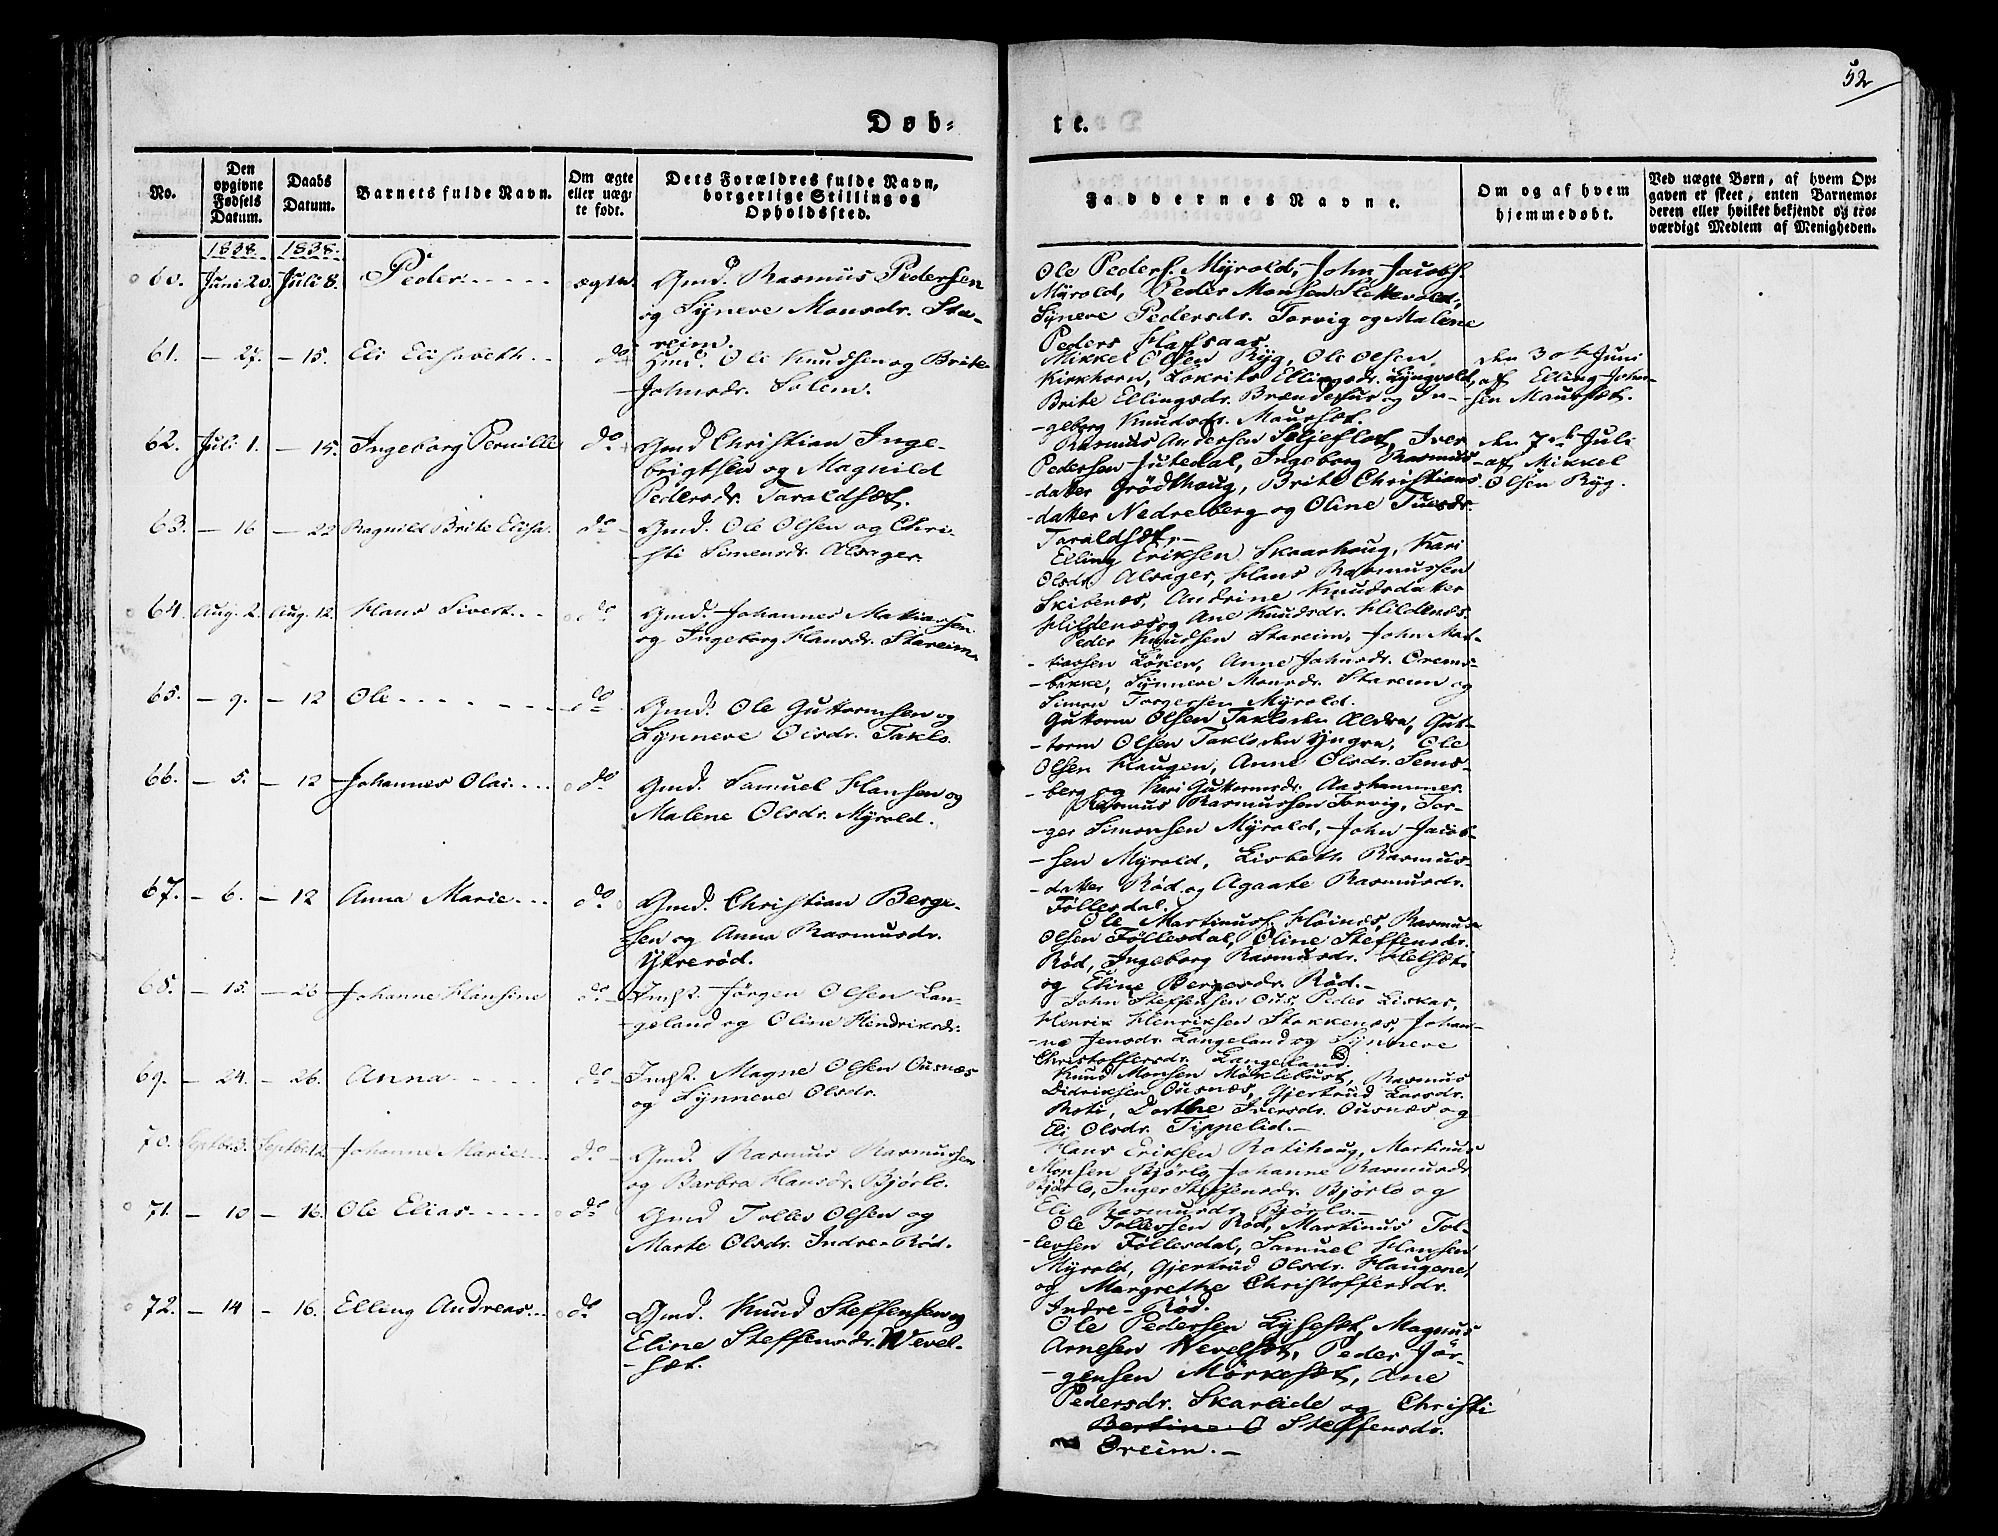 52
Døb-
te.
No.
Den
opgivne
Fødsels
Datum.
Daabs
Datum.
Barnets fulde Navn.
Om ægte
eller uæg-
te født.
Dets Forældres fulde Navn,
borgerlige Stilling og
Opholdssted.
Faddernes Navne.
Om og af hvem
hjemmedøbt.
Ved uægte Børn, af hvem Op-
gaven er skeet, enten Barnemo-
deren eller hvilket bekjendt og tro-
værdigt Medlem af Menigheden.
1838. 1838.
60. Juni 20. Juli 8. Peder ægte. Gmd. Rasmus Pedersen
og Synneve Monsdr. Sta-
reim.
Ole Peders. Myrold, John Jacobs.
Myrold, Peder Monsen Slettevold,
Synneve Pedersdr. Torvig og Malene
Peders
61. - 27. - 15. Eli Elisabeth do Hmd. Ole Knudsen og Brite
Johnsdr. Solem.
Mikkel Olsen Ryg, Ole Olsen
Kirkhorn, Ellingsdr. Lyngvold,
Brite Ellingsdr. og In-
geborg Knudsdr. Maurset.
den 30te Juni
af Elling John-
sen Maurset.
62. Juli 1. - 15. Ingeborg Pernille do Gmd Christian Inge-
brigtsen og Magnild
Pedersdr. Taraldset.
Rasmus Andersen Seljeflot, Iver
Pedersen Jutedal, Ingeborg Rasmus-
datter Grödthoug, Brite Christians-
datter Nedreberg og Oline
Taraldset.-
den 7de Juli
af Mikkel
Olsen Ryg.
63. - 16 - 22 Ragnild Brite Elisa. do Gmd. Ole Olsen og Chri-
sti Simensdr. Alsager.
Elling Eriksen Skaarhoug, Kari
Olsdr. Alsager, Hans Rasmussen
Skibenæs, Andrine Knudsdatter
Hildenæs og Ane Knudsdr. Hildenæs.
64. Aug. 2. Aug. 12. Hans Sivert do Gmd. Johannes Matiassen
og Ingeborg Hansdr. Stareim.
Peder Knudsen Stareim, John Mat-
tiassen Löken, Anne Johnsdr. Orems-
bakke, Synneve Monsdr. Stareim og
Simon Torgersen Myrold.
65. - 9. - 12 Ole do Gmd. Ole Guttormsen og
Synneve Olsdr. Taklo.
Guttorm Olsen Taklo den Aldre, Gut-
torm Olsen Taklo den Yngre, Ole
Olsen Haugen, Anne Olsdr. Sems-
berg og Kari Guttormsdr. Aashammer.
66. - 5. - 12 Johannes Olai do Gmd. Samuel Hansen og
Malene Olsdr. Myrold.
Rasmus Rasmussen Torvig, Tor-
ger Simonsen Myrold, John Jacob-
sen Myrold, Lisbeth Rasmus-
datter Röd og Agaate Rasmusdr.
Föllesdal.
67. - 6. - 12 Anna Marie do Gmd. Christian Berge-
sen og Anna Rasmusdr.
Ytreröd.
Ole Martinus. Höinæs, Rasmus
Olsen Föllesdal, Oline Steffensdr.
Röd, Ingeborg Rasmusdr. Helset
og Eline Bergesdr. Röd.-
68. - 15. - 26 Johanne Hansine do Inds. Jörgen Olsen Lan-
geland og Oline Hendriksdr.
John Steffensen Ous, Peder Liskar,
Henrik Henriksen Stokkenæs, Johan-
ne Jensdr. Langeland og Synneve
Christoffersdr. Langeland.
69. - 24. - 26. Anna do Inds. Magne Olsen Ousnæs
og Synneve Olsdr.
Knud Monsen Möklebust, Rasmus
Didriksen Ousnæs, Gjertrud Larsdr.
Roti, Dorthe Iversdr. Ousnæs og
Eli Olsdr. Tippelid.-
70. Septbr Septbr Johanne Marie do Gmd. Rasmus Rasmussen
og Barbra Hansdr. Bjørlo.
Hans Eriksen Rotihoug, Martinus
Monsen Bjørlo, Johanne Rasmusdr
Bjørlo, Inger Steffensdr. Bjørlo og
Eli Rasmusdr. Bjørlo.-
71. - 10 - 16. Ole Elias do Gmd Tollev Olsen og
Marte Olsdr. Indre-Röd.
Ole Tollevsen Röd, Martinus Tol-
levsen Föllesdal, Samuel Hansen
Myrold, Gjertrud Olsdr. Haugene,
og Margrethe Christoffersdr.
Indre-Röd.
72. - 14 - 16. Elling Andreas do Gmd. Knud Steffensen og
Eline Steffensdr. Wevel-
set.
Ole Pedersen Lyseset, Magnus
Arnesen Wevelset, Peder Jör-
gensen Mörkeset, Ane
Pedersdr. Skarlide og Christi
Bertine O Steffensdr.
Oreim.-